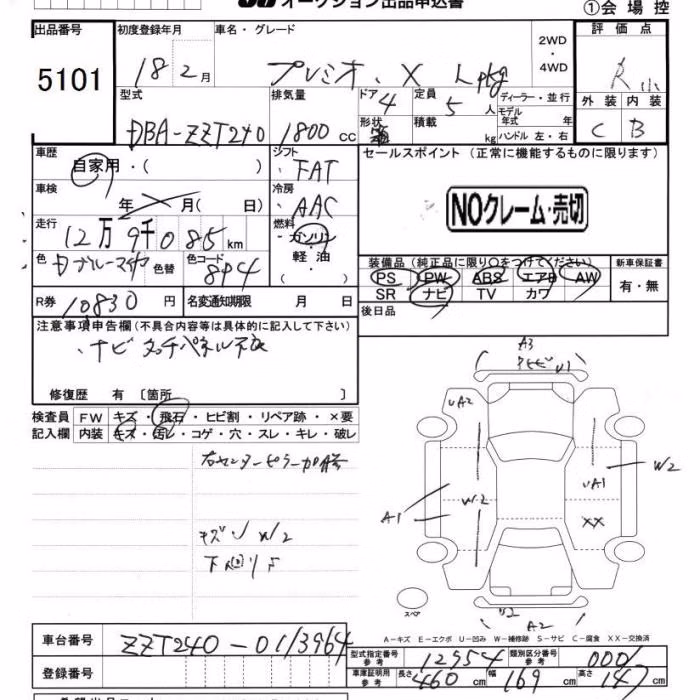 オークション出品申込書
①会場控
出品番号
5101
初度登録年月
18 2月
車名・グレード
プレミオ、X Lpkg
2WD
・
4WD
評価点
R 小
外装 内装
C B
型式
DBA-ZZT240
排気量
1800 CC
ドア
4
形状
定員
5 人
積載
kg
ディーラー・並行
モデル年式 年
ハンドル 左・右
車歴
自家用・( )
シフト
FAT
セールスポイント (正常に機能するものに限ります)
NOクレーム・売切
車検
年 月( 日)
冷房
AAC
走行
12万9千085km
燃料
ガソリン
軽油
色
色替
色コード
8P4
R券 10830 円
名変通知期限 月 日
装備品(純正品に限り○をつけてください)
PS PW ABS エアB AW
SR ナビ TV カワ
新車保証書
有・無
後日品
注意事項申告欄(不具合内容等は具体的に記入して下さい)
・ナビタッチパネル不良
修復歴 有 〔箇所 〕
検査員 FW キズ・飛石・ヒビ割・リペア跡・×要
記入欄 内装 キズ・汚レ・コゲ・穴・スレ・キレ・破レ
右センターピラー加修
キズ W2
下廻りサ
A3
U1
UA2
W2
UA1
A1
W2
XX
スペア
U2
A2
A-キズ E-エクボ U-凹み W-補修跡 S-サビ C-腐食 XX-交換済
車台番号 ZZT240-0113964
登録番号
型式指定番号 参考 12954
類別区分番号 参考 0001
車庫証明用 参考 長さ 460 cm 幅 169 cm 高さ 147 cm